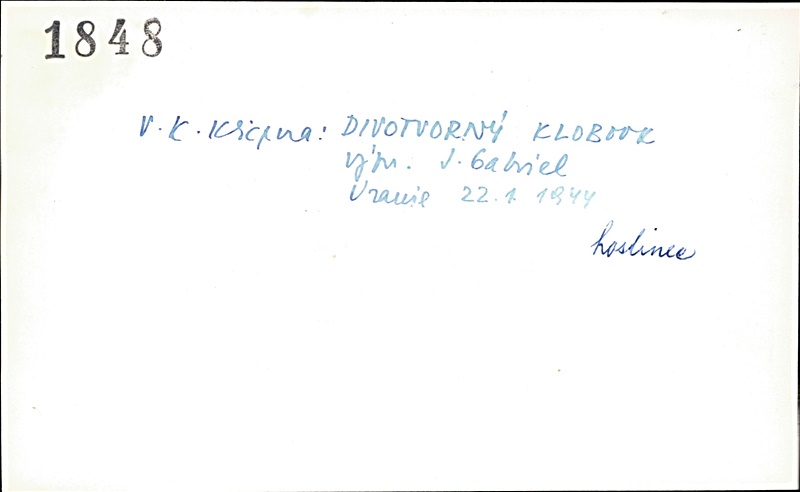 1848
V. K. Klicpera: DIVOTVORNÝ KLOBOUK
výpr. J. Gabriel
Uranie 22. 1. 1944
hostinec